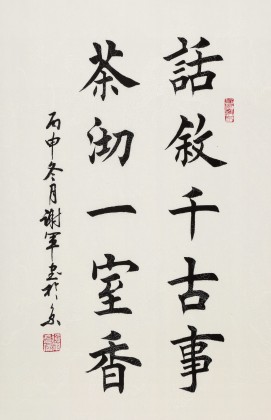 話敘千古事
茶沏一室香
丙申冬月謝軍书於京